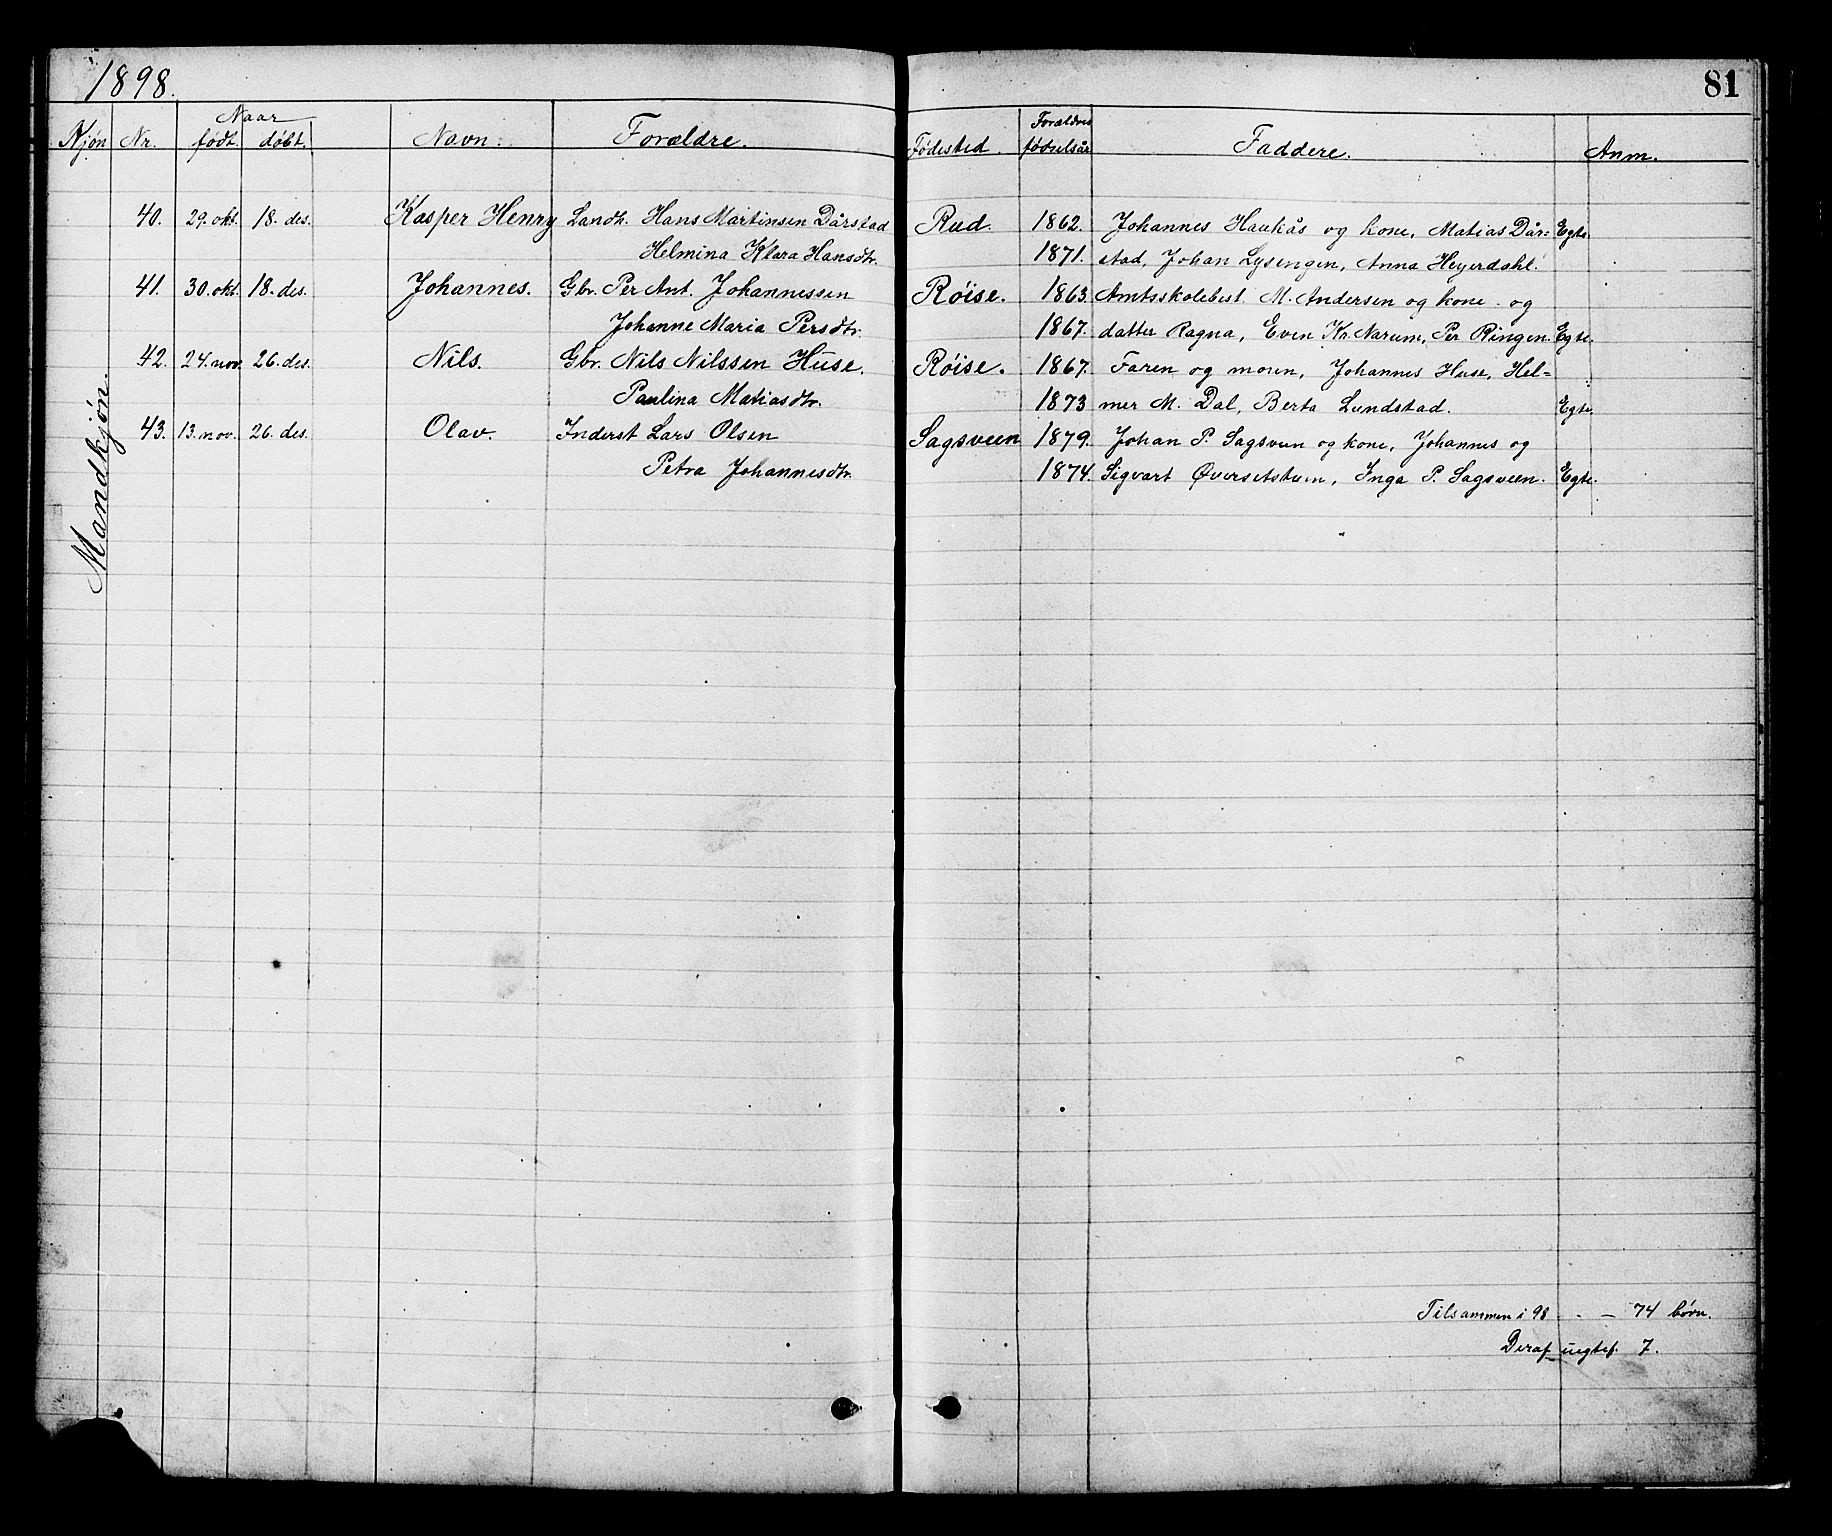 1898.
81
Kjøn Nr. Naar født. døbt. Navn. Forældre. Fødested. Forældres fødselsår Faddere. Anm.
Mandkjøn.
40. 29. okt. 18. des. Kasper Henry Landh. Hans Martinsen Dårstad Rud. 1862. Johannes Haukås og kone, Matias Dår= Egte.
Helmina Klara Hansdtr. 1871. stad, Johan Lysengen, Anna Heyerdahl.
41. 30. okt. 18. des. Johannes. Gbr. Per Ant. Johannessen Røise. 1863. Amtsskolebest. M. Andersen og kone og
Johanne Maria Persdtr. 1867. datter Ragna, Even Kr. Narum, Per Ringen. Egte.
42. 24. nov. 26. des. Nils. Gbr. Nils Nilssen Huse. Røise. 1867. Faren og moren, Johannes Huse, Hel=
Paulina Matiasdtr. 1873 mer M. Dal, Berta Lundstad. Egte.
43. 13. nov. 26. des. Olav. Inderst Lars Olsen Sagsveen 1879. Johan P. Sagsveen og kone, Johannes og
Petra Johannesdtr. 1874. Sigvart Øversetstuen, Inga P. Sagsveen. Egte.
Tilsammen i 98 - - 74 børn.
Deraf uegtef. 7.